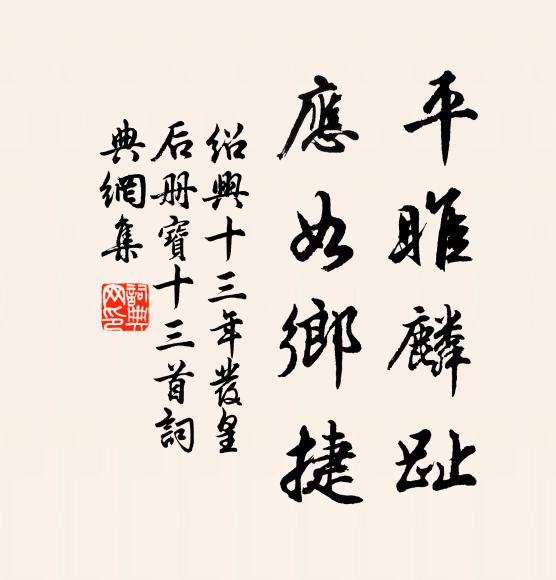 平雎麟趾
應如鄉捷
紹興十三年發皇
后册寶十三首詞
典網集
詞典網印